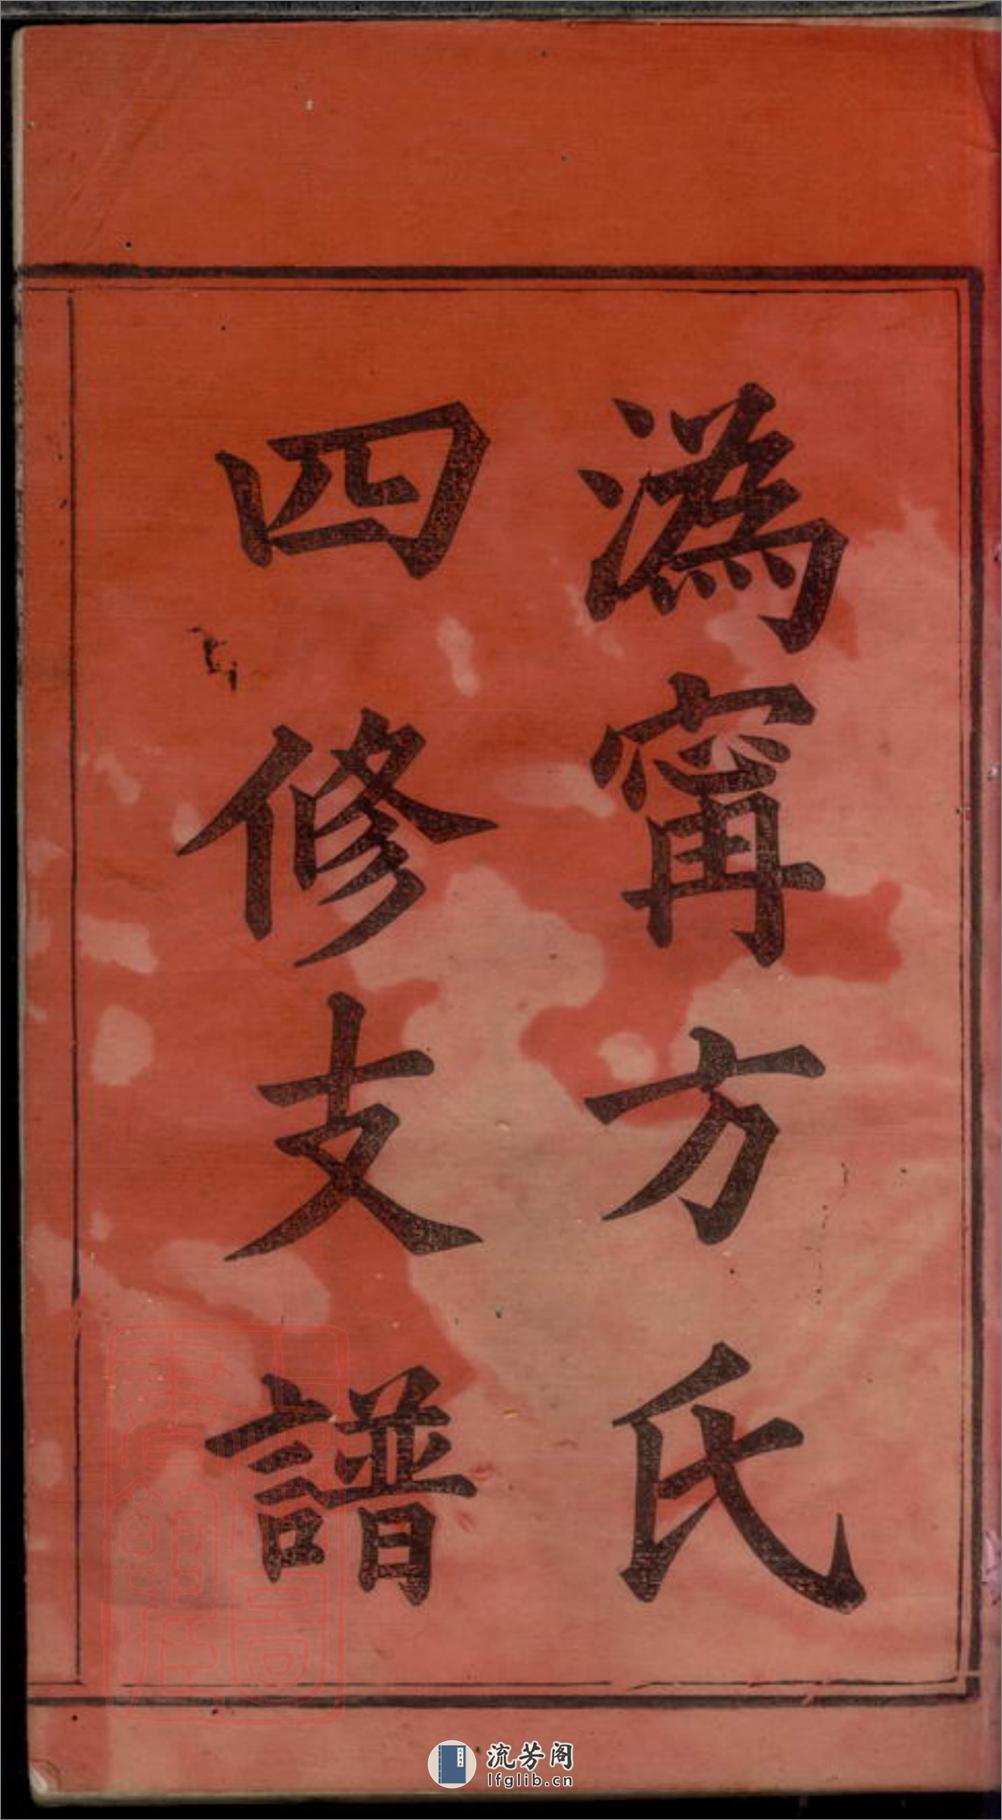 溈甯方氏
四修支譜
流芳阁
lfglib.cn